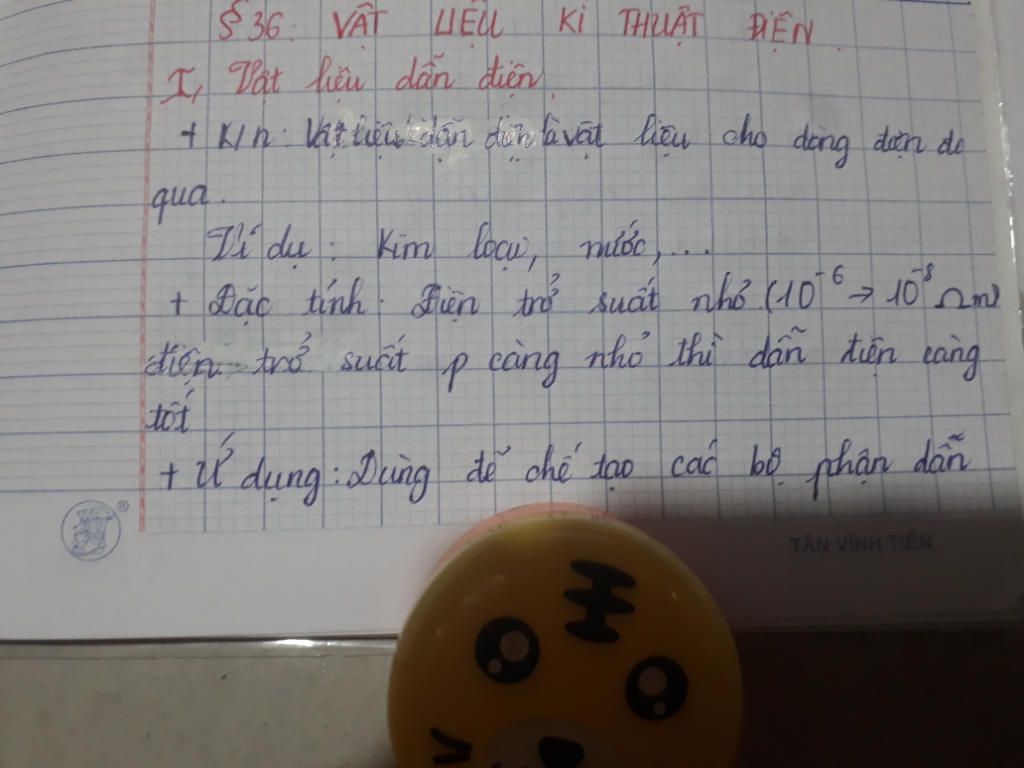 § 36. VẬT LIỆU KĨ THUẬT ĐIỆN.
I, Vật liệu dẫn điện.
+ K/n: Vật liệu dẫn điện là vật liệu cho dòng điện đo
qua.
Ví dụ: Kim loại, nước,...
+ Đặc tính: Điện trở suất nhỏ (10⁻⁶ → 10⁻⁸ Ωm)
điện trở suất ρ càng nhỏ thì dẫn điện càng
tốt
+ Ứ dụng: Dùng để chế tạo các bộ phận dẫn
®
TÂN VĨNH TIẾN